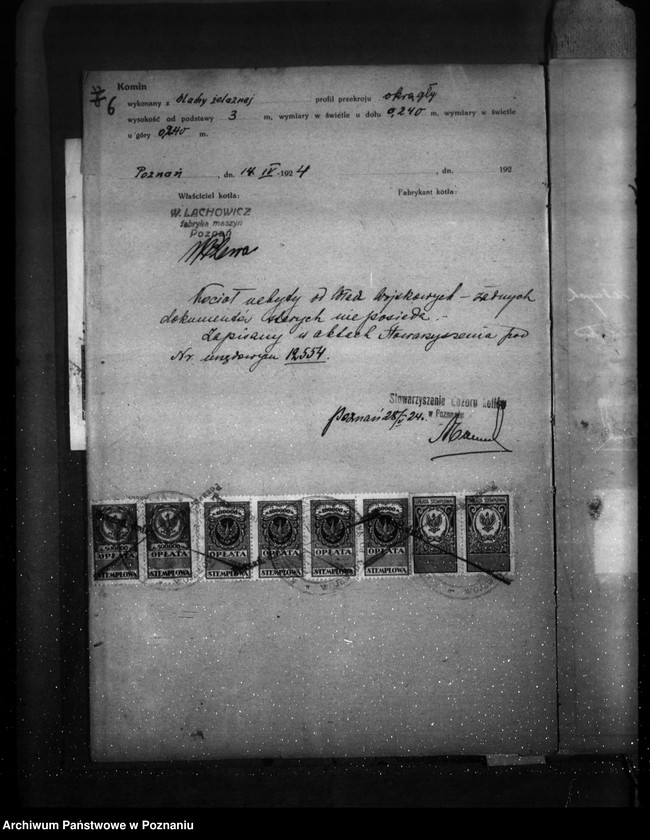 Komin
6
wykonany z blachy żelaznej profil przekroju okrągły
wysokość od podstawy 3 m, wymiary w świetle u dołu 0,240 m, wymiary w świetle
u góry 0,240 m.
Poznań, dn. 14. IV. 1924 , dn. 192
Właściciel kotła: Fabrykant kotła:
W. LACHOWICZ
fabryka maszyn
Poznań
Kocioł nabyty od Władz Wojskowych – żadnych
dokumentów starych nie posiada.-
Zapisany w aktach Stowarzyszenia pod
Nr. urzędowym 12554.
Stowarzyszenie Dozoru Kotłów
w Poznaniu
Poznań 28/ 24.
500000 500000
OPŁATA OPŁATA OPŁATA OPŁATA OPŁATA OPŁATA
STEMPLOWA STEMPLOWA STEMPLOWA STEMPLOWA STEMPLOWA STEMPLOWA
Archiwum Państwowe w Poznaniu